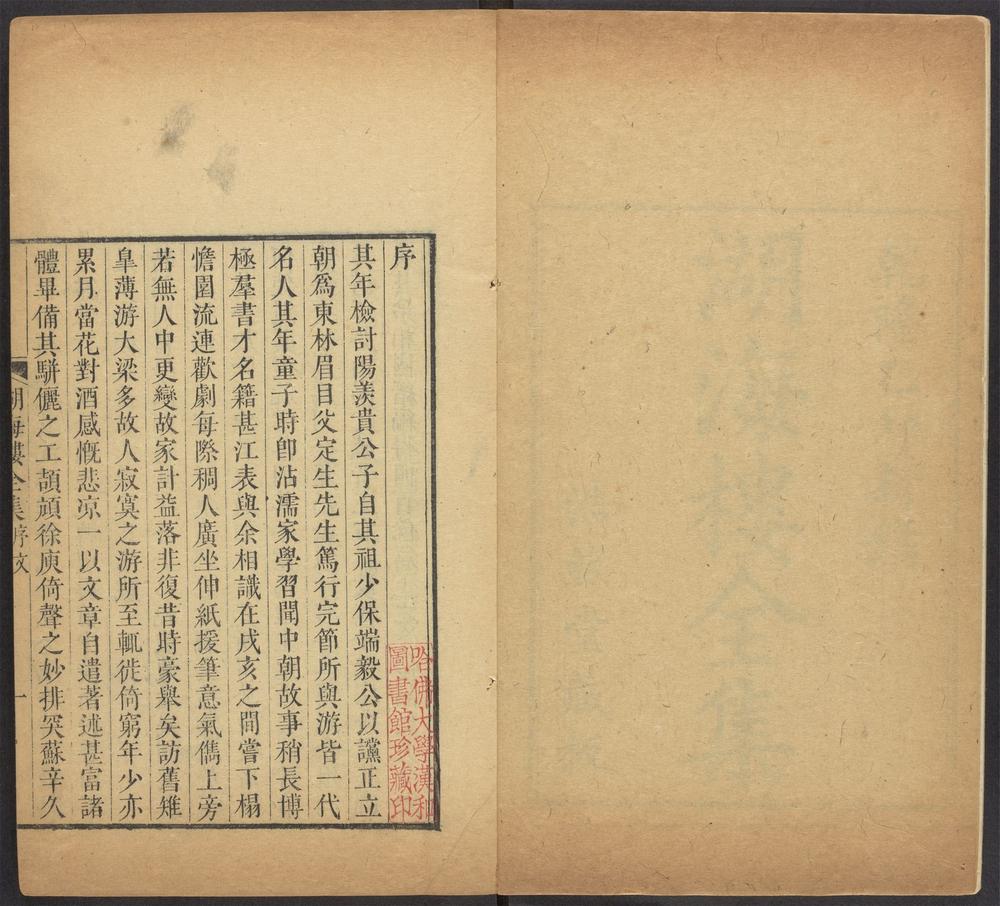 序
其年檢討陽羨貴公子自其祖少保端毅公以讜正立
朝爲東林眉目父定生先生篤行完節所與游皆一代
名人其年童子時卽沾濡家學習聞中朝故事稍長博
極羣書才名籍甚江表與余相識在戌亥之間嘗下榻
憺園流連歡劇每際稠人廣坐伸紙援筆意氣儁上旁
若無人中更變故家計益落非復昔時豪舉矣訪舊雉
臯薄游大梁多故人寂寞之游所至輒徙倚窮年少亦
累月當花對酒感慨悲凉一以文章自遣著述甚富諸
體畢備其駢儷之工頡頏徐庾倚聲之妙排突蘇辛久
湖海樓全集序文
一
哈佛大學漢和
圖書館珍藏印